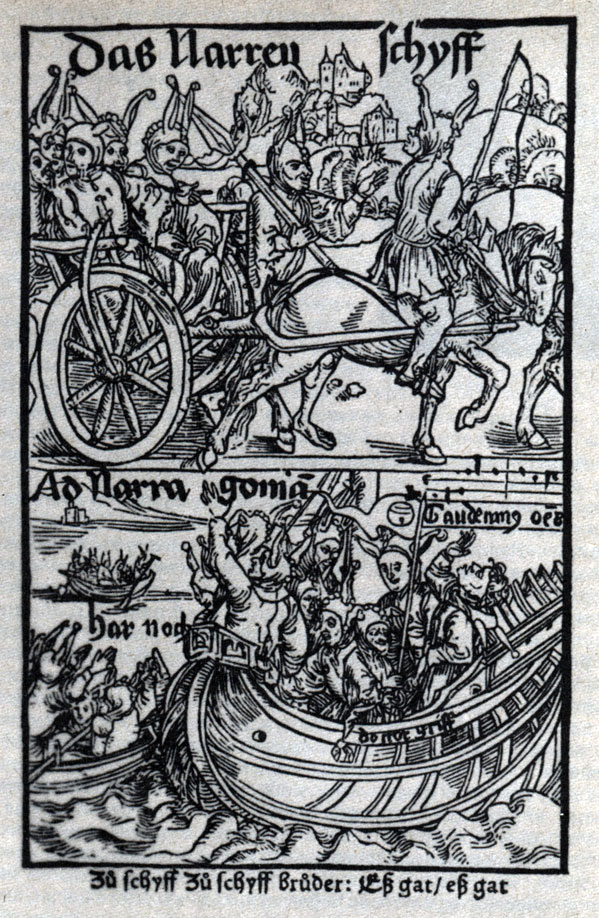 Das Narren schyff
Ad Narragoniã
Gaudeamꝰ oẽs
har noch
doctor griff
Zů schyff Zů schyff brůder: Eß gat/ eß gat